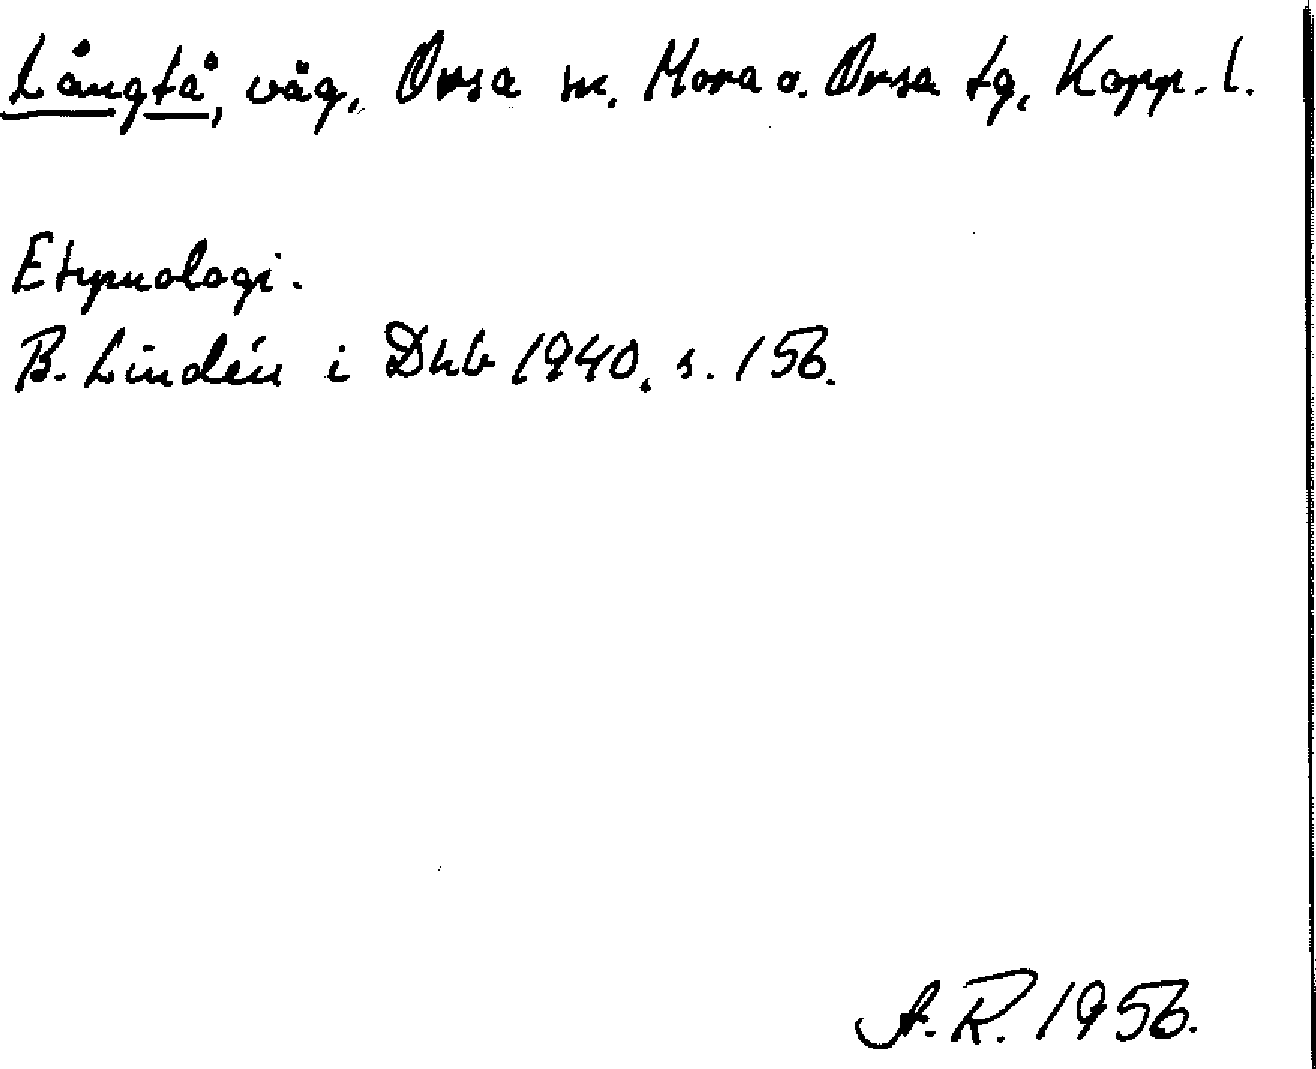 Långtå, väg, Orsa sn. Mora o. Orsa tg, Kopp. l.
Etymologi.
B. Lindén i Dhb 1940, s. 156.
A.R. 1956.